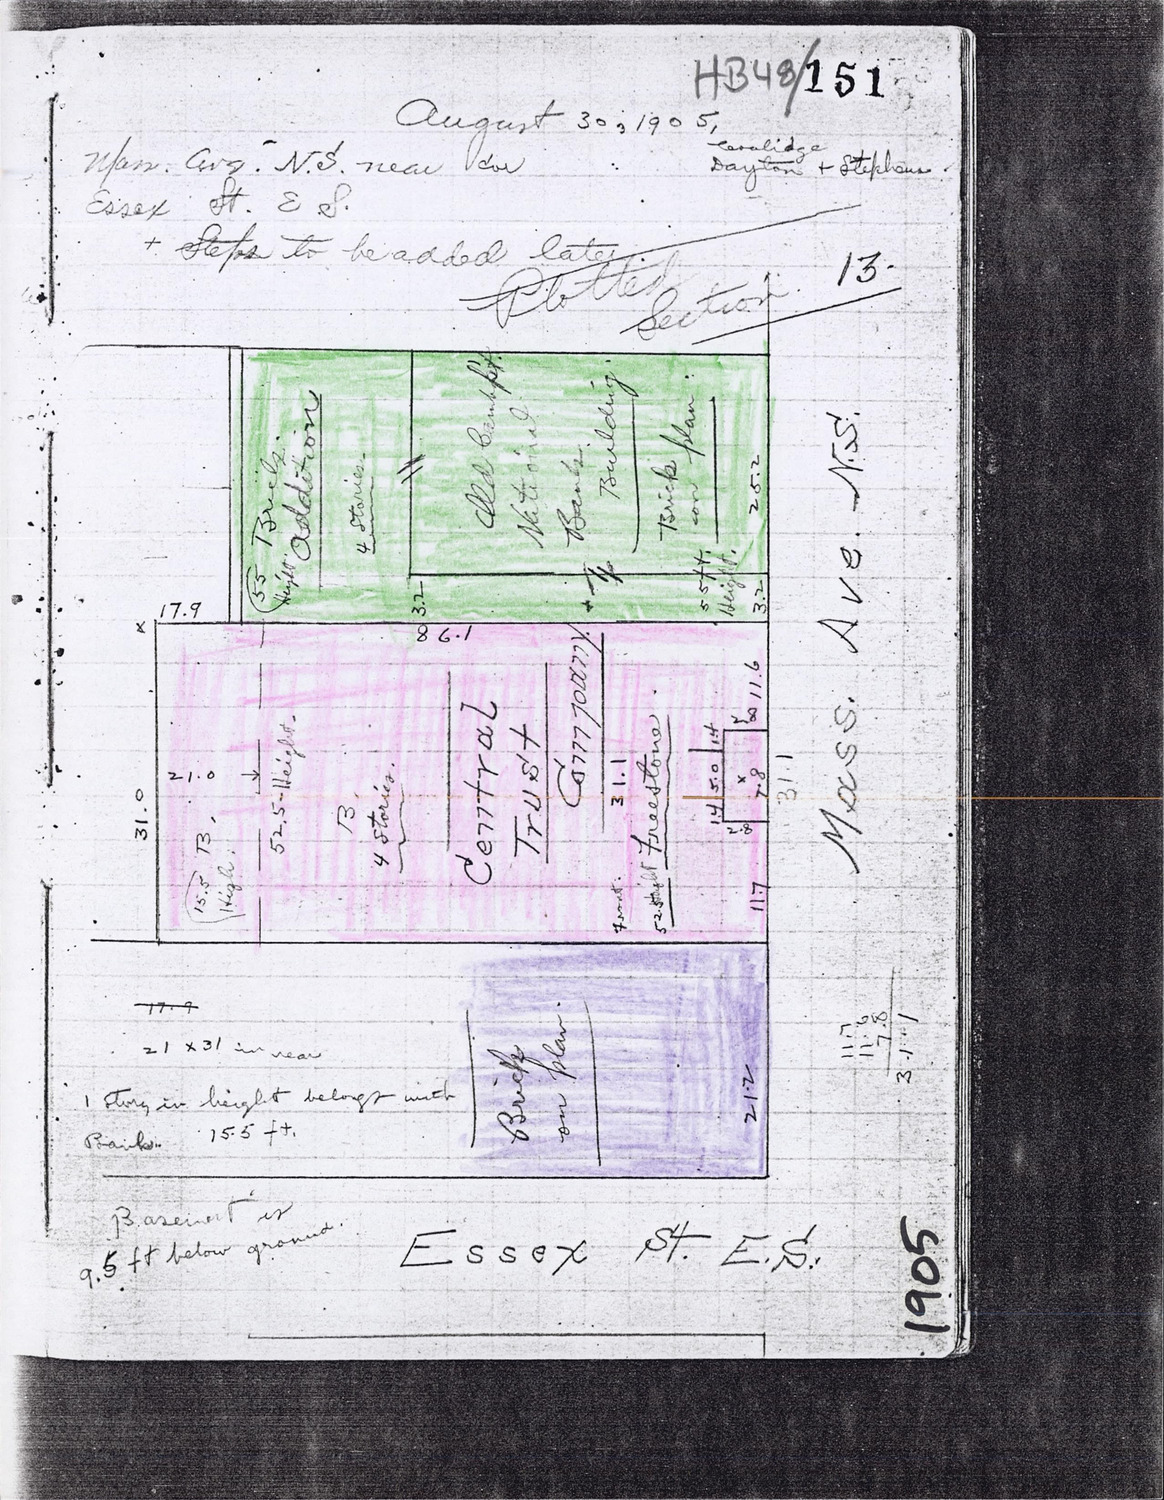 HB48/151
August 30, 1905,
Mass. Ave. N.S. near cor
Coolidge
Dayton + Stephens.
Essex St. E S.
+ Steps to be added later.
Plotted
Section
13.
(55 Brick
Hight Addition
4 Stories.
Old Camb'pt
National
Bank.
Building
Brick
on plan.
25.2
55 ft.
Height.
3.2
3.2
17.9
86.1
Mass. Ave. N.S.
x
31.0
21.0
(15.5 B.
High.
52.5-Height.
B.
4 Stories.
Central
Trust
Company
31.1
Front.
52.5 Hight Freestone.
14 5.0 14
2.8
x
7.8
11.6
11.7
31.1
11.7
11.6
7.8
31.1
17.9
21 x 31 in rear
1 Story in height belongs with
Bank. 15.5 ft.
Brick
on plan.
21.2
Basement is
9.5 ft below ground.
Essex St. E.S.
1905